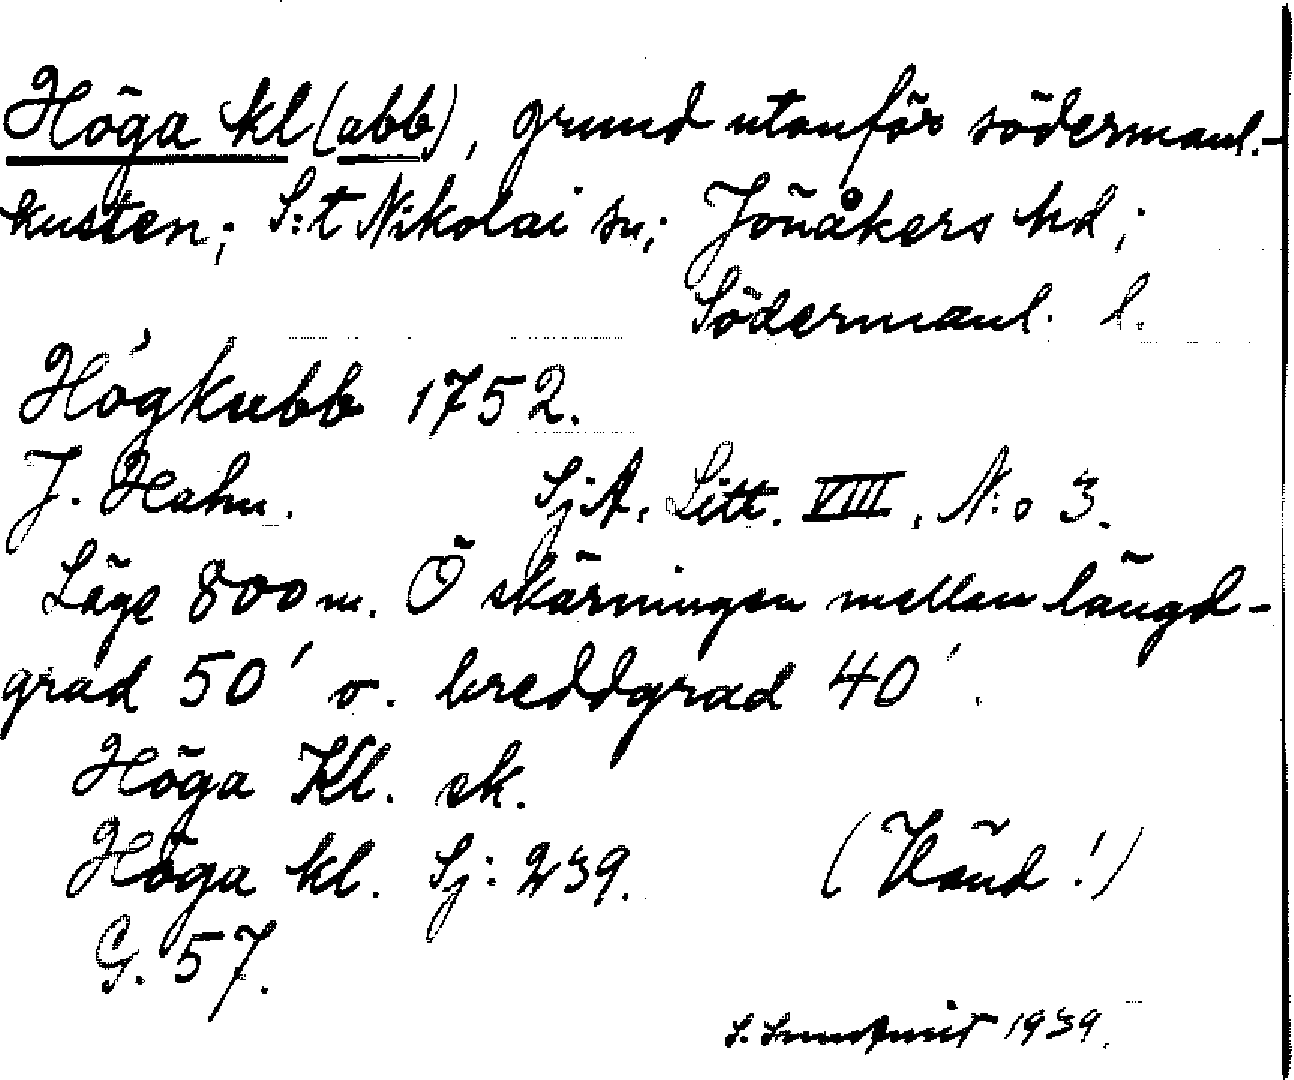 Höga kl(abb), grund utanför södermanl.-
kusten; S:t Nikolai sn; Jönåkers hd;
Södermanl. l.
Högkubb 1752.
J. Hahn. SjA. Litt. VIII, N:o 3.
Läge 800 m. Ö skärningen mellan längd-
grad 50' o. breddgrad 40'.
Höga Kl. ek.
Höga kl. Sj: 239.
(Vänd!)
G. 57.
S. Sundqvist 1939.